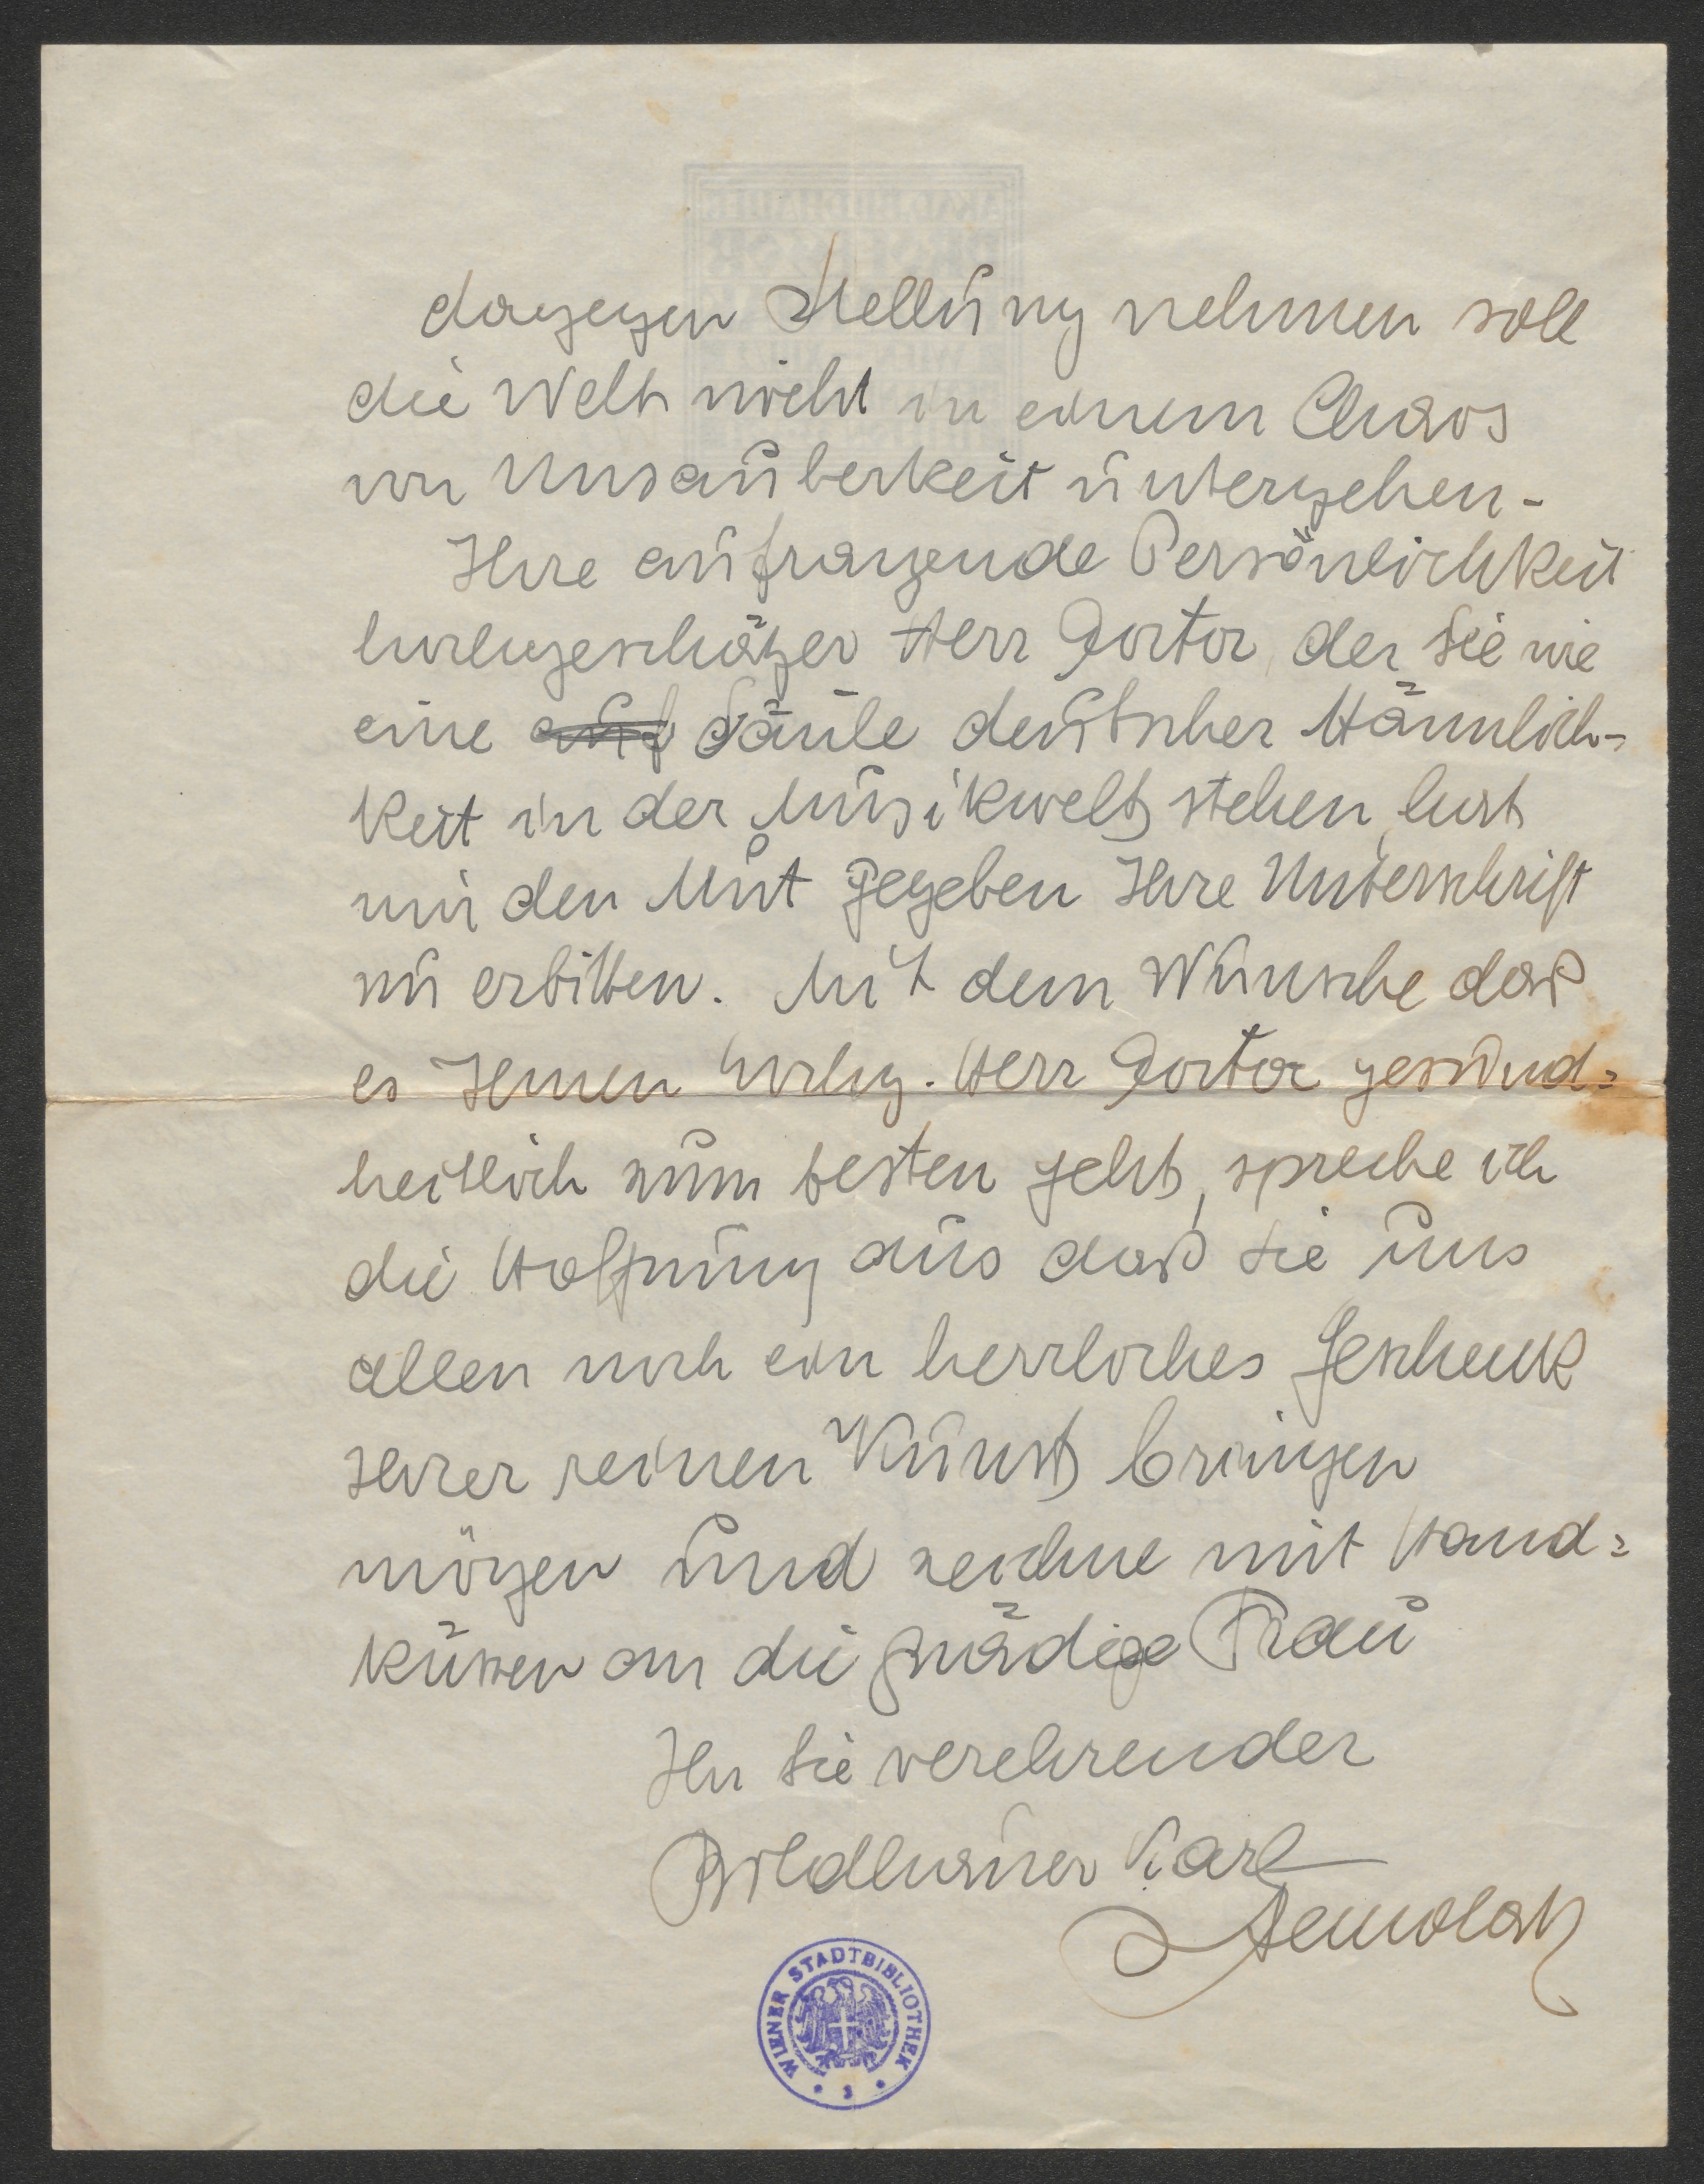 dagegen Stellung nehmen soll
die Welt nicht in einem Chaos
von Unsauberkeit untergehen-
Ihre aufragende Persönlichkeit
hochgeschäzer Herr Doctor, der Sie wie
eine auf Säule deutscher Männlich-
keit in der Musikwelt stehen, hat
mir den Mut gegeben Ihre Unterschrift
zu erbitten. Mit dem Wunsche daß
es Ihnen hochg. Herr Doctor gesund=
heitlich zum besten geht, spreche ich
die Hoffnung aus daß Sie uns
allen noch ein herrliches Geschenk
Ihrer reinen Kunst bringen
mögen und zeichne mit Hand=
küssen an die gnädige Frau
Ihr Sie verehrender
Bildhauer Karl
WIENER STADTBIBLIOTHEK